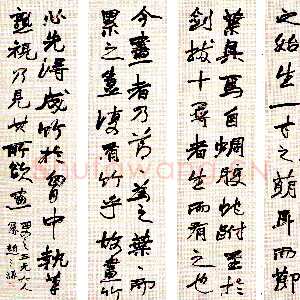 之始生一寸之萌耳而節
葉具焉自蜩腹蛇蚹至於
劍拔十尋者生而有之也
今畫者乃節為之葉〻而
累之豈復有竹乎故畫竹
必先得成竹於胸中執筆
熟視乃見其所欲畫